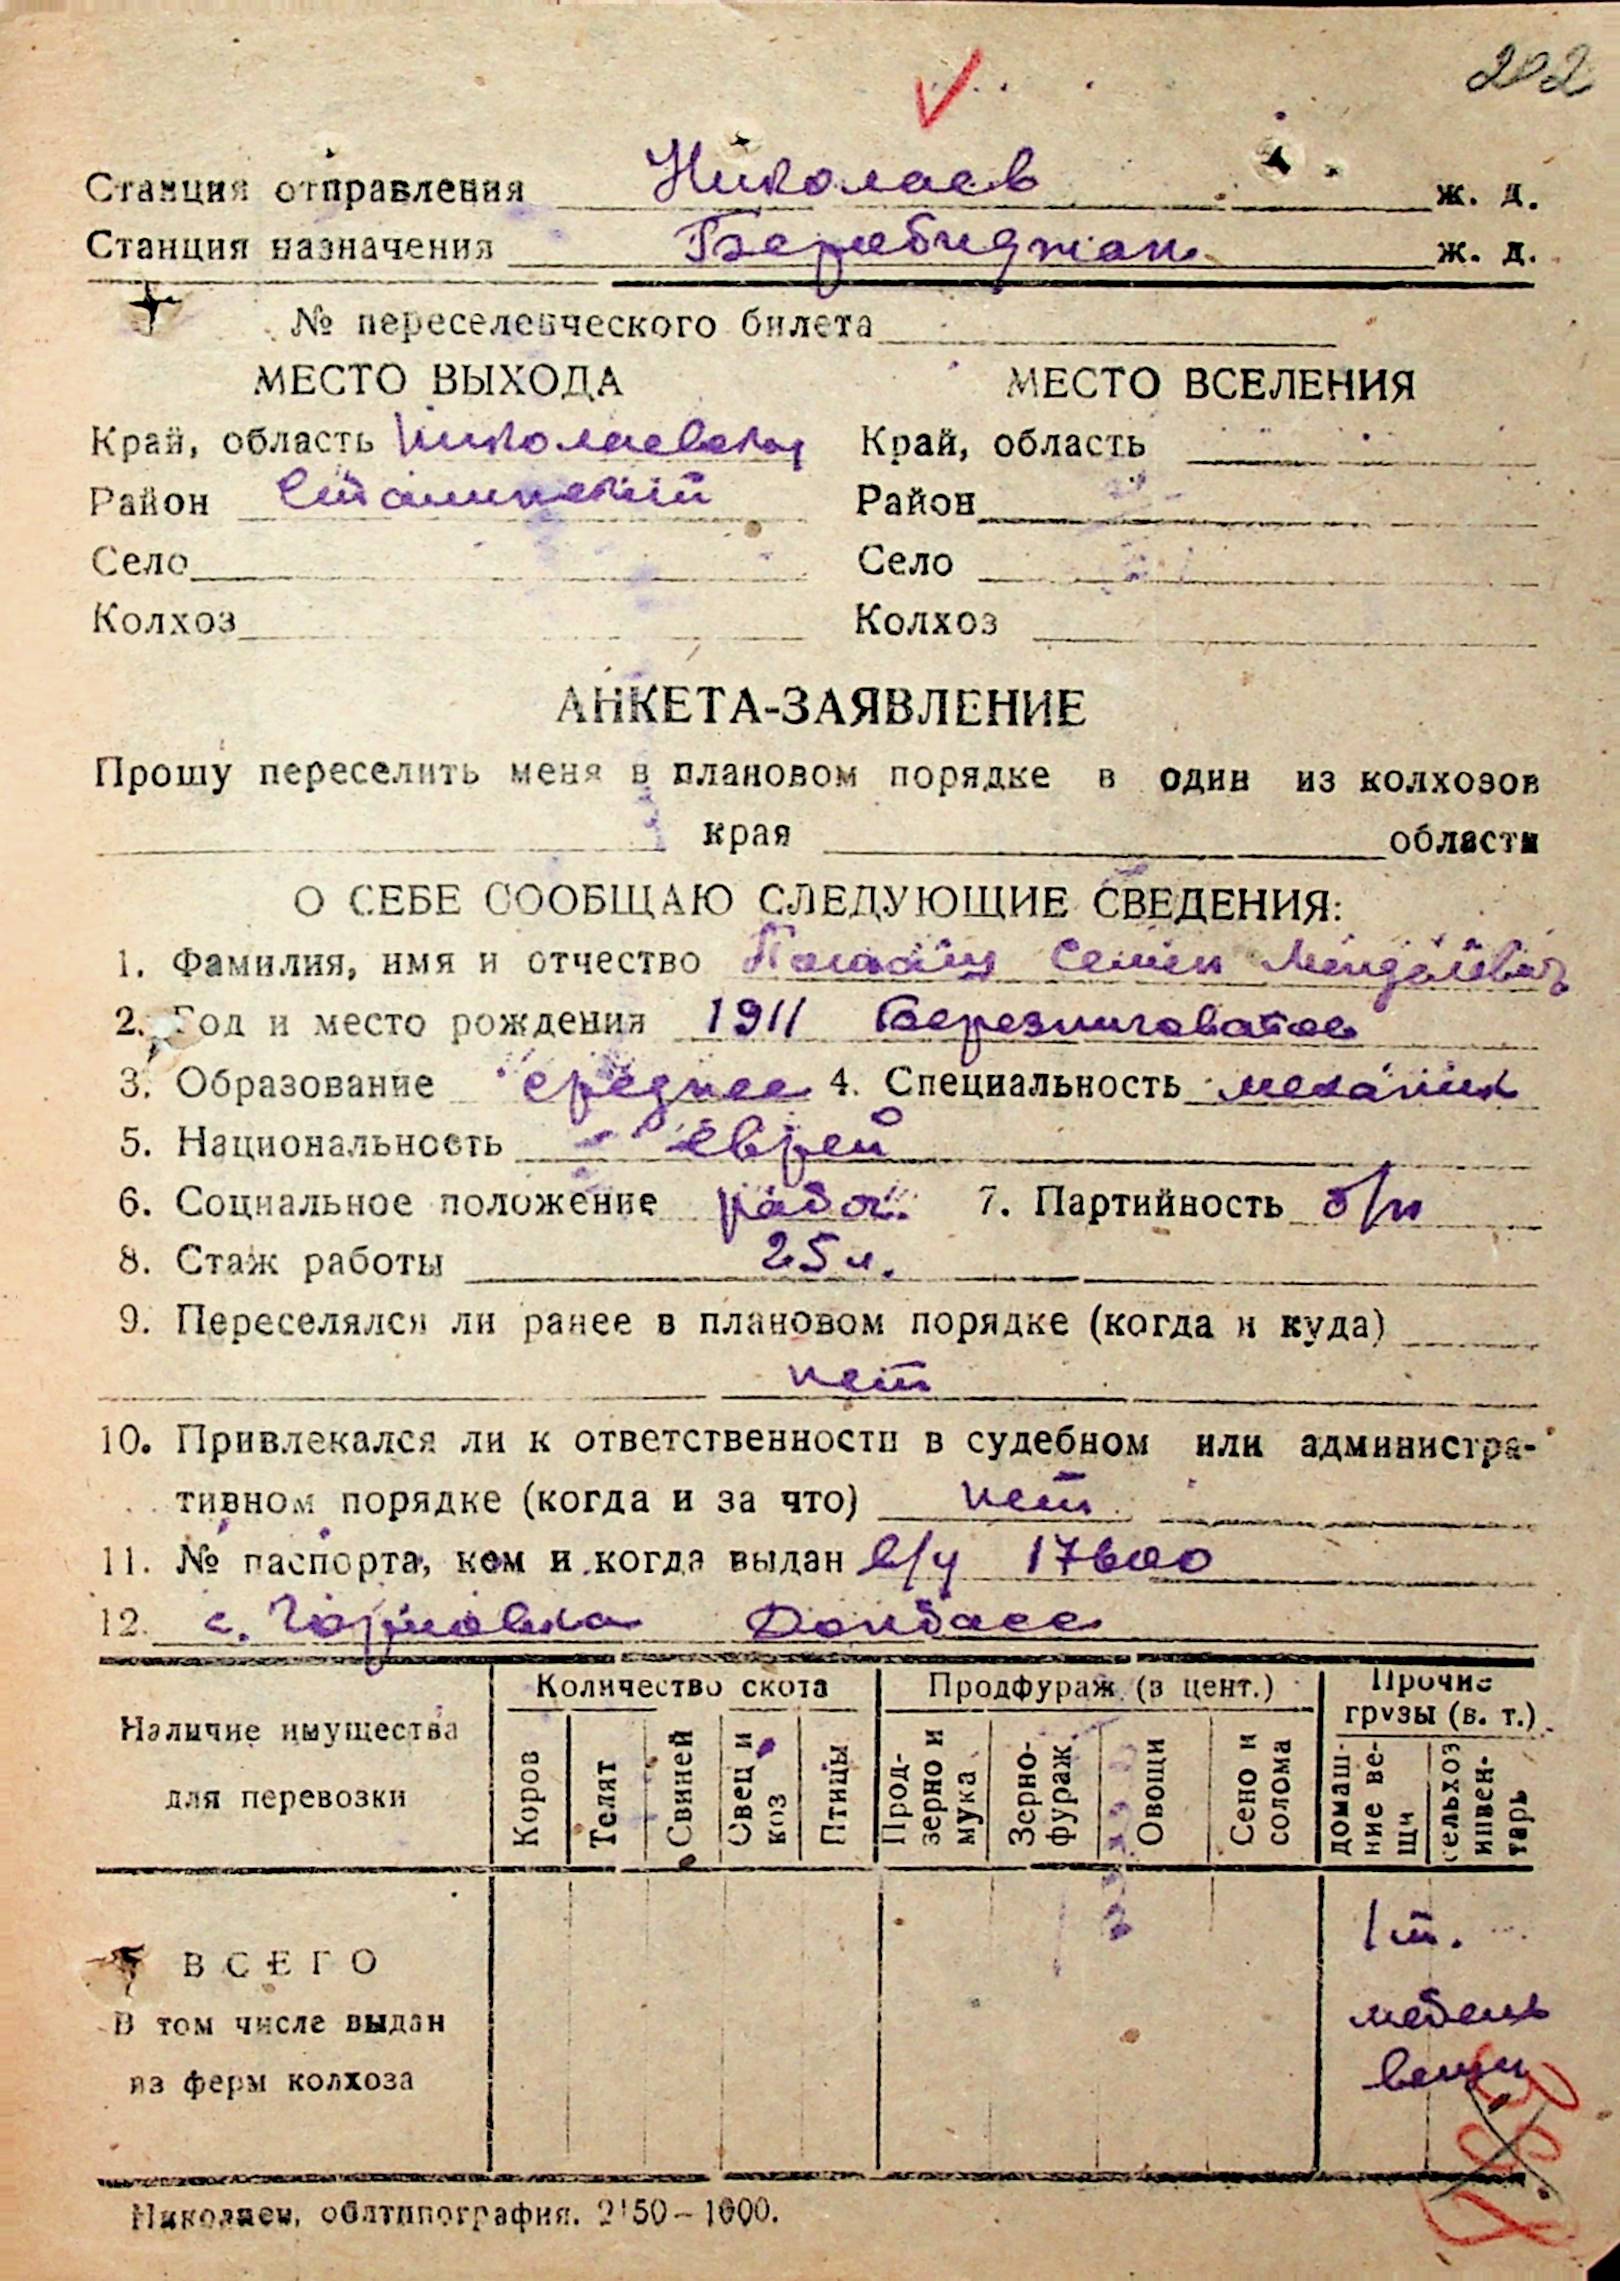 202
Станция отправления Николаев ж. д.
Станция назначения Беробиджан ж. д.
№ переселенческого билета
МЕСТО ВЫХОДА МЕСТО ВСЕЛЕНИЯ
Край, область Николаевская Край, область
Район Сталинский Район
Село Село
Колхоз Колхоз
АНКЕТА-ЗАЯВЛЕНИЕ
Прошу переселить меня в плановом порядке в один из колхозов
края области
О СЕБЕ СООБЩАЮ СЛЕДУЮЩИЕ СВЕДЕНИЯ:
1. Фамилия, имя и отчество Семен Менделевич
2. Год и место рождения 1911 Березниговатое
3. Образование среднее 4. Специальность механик
5. Национальность еврей
6. Социальное положение рабоч. 7. Партийность б/п
8. Стаж работы 25 л.
9. Переселялся ли ранее в плановом порядке (когда и куда)
нет
10. Привлекался ли к ответственности в судебном или администра-
тивном порядке (когда и за что) нет
11. № паспорта, кем и когда выдан 17600
12. г. Горловка Донбасс
Наличие имущества для перевозки
Количество скота Продфураж (в цент.) Прочие грузы (в. т.)
Коров Телят Свиней Овец и коз Птицы Прод-зерно и мука Зерно-фураж Овощи Сено и солома домаш-ние ве-щи сельхоз инвен-тарь
ВСЕГО 1 т.
В том числе выдан мебель
из ферм колхоза вещи
Николаев, облтипография. 2150–1000.